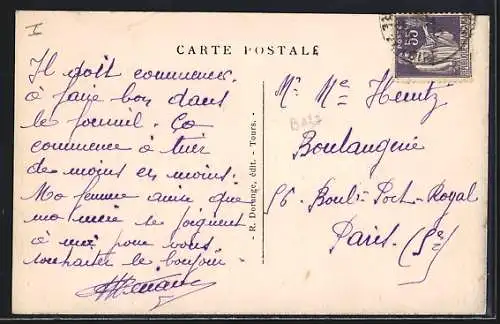 I
CARTE POSTALE
55
Il doit commencer
à faire bon dans
le fournil. Ça
commence à tuer
de moins en moins.
Ma femme ainsi que
ma mère se joignent
à moi pour vous
souhaiter le bonjour.
R. Dorange, édit. - Tours.
Mr Me Heintz
Boulangerie
56. Boul. Port-Royal
Paris (5e)